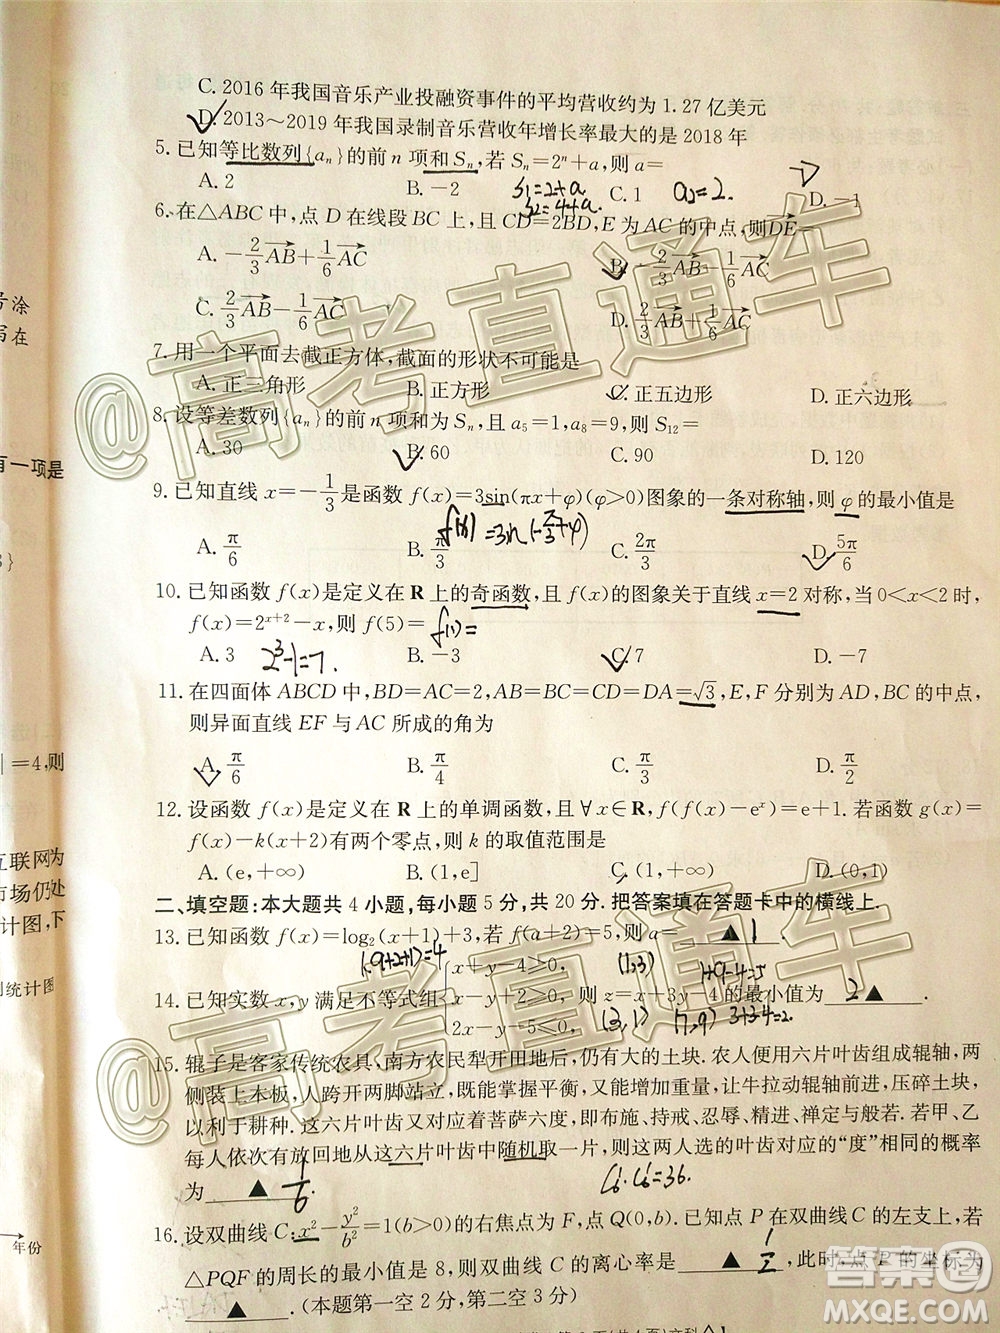 C. 2016 年我国音乐产业投融资事件的平均营收约为 1.27 亿美元
D. 2013～2019 年我国录制音乐营收年增长率最大的是 2018 年
5. 已知等比数列{aₙ}的前 n 项和 Sₙ,若 Sₙ=2ⁿ+a,则 a=
A. 2 B. -2 C. 1 D. -1
S₁=2+a
S₂=4+a.
a₂=2.
6. 在△ABC 中,点 D 在线段 BC 上,且 CD=2BD,E 为 AC 的中点,则DE=
A. -2/3 AB+1/6 AC B. -2/3 AB-1/6 AC
C. 2/3 AB-1/6 AC D. 2/3 AB+1/6 AC
7. 用一个平面去截正方体,截面的形状不可能是
A. 正三角形 B. 正方形 C. 正五边形 D. 正六边形
8. 设等差数列{aₙ}的前 n 项和为 Sₙ,且 a₅=1,a₈=9,则 S₁₂=
A. 30 B. 60 C. 90 D. 120
9. 已知直线 x=-1/3是函数 f(x)=3sin(πx+φ)(φ>0)图象的一条对称轴,则 φ 的最小值是
f(x)=3sin(-π/3+φ)
A. π/6 B. π/3 C. 2π/3 D. 5π/6
10. 已知函数 f(x)是定义在 R 上的奇函数,且 f(x)的图象关于直线 x=2 对称,当 0<x<2 时,
f(x)=2ˣ⁺²-x,则 f(5)= f(1)=
A. 3 B. -3 C. 7 D. -7
2³-1=7.
11. 在四面体 ABCD 中,BD=AC=2,AB=BC=CD=DA=√3,E,F 分别为 AD,BC 的中点,
则异面直线 EF 与 AC 所成的角为
A. π/6 B. π/4 C. π/3 D. π/2
12. 设函数 f(x)是定义在 R 上的单调函数,且∀x∈R,f(f(x)-eˣ)=e+1. 若函数 g(x)=
f(x)-k(x+2)有两个零点,则 k 的取值范围是
A. (e,+∞) B. (1,e] C. (1,+∞) D. (0,1)
二、填空题:本大题共 4 小题,每小题 5 分,共 20 分. 把答案填在答题卡中的横线上.
13. 已知函数 f(x)=log₂(x+1)+3,若 f(a+2)=5,则 a= ▲ 1 .
x+y-4≥0,
(1,3) 1+9-4=5
14. 已知实数 x,y 满足不等式组 则 z=x+3y-4 的最小值为 2 ▲ .
2x-y-5≤0,
(3,1) (7,9) 3+3-4=2.
15. 辊子是客家传统农具,南方农民犁开田地后,仍有大的土块. 农人便用六片叶齿组成辊轴,两
侧装上木板,人跨开两脚站立,既能掌握平衡,又能增加重量,让牛拉动辊轴前进,压碎土块,
以利于耕种. 这六片叶齿又对应着菩萨六度,即布施、持戒、忍辱、精进、禅定与般若. 若甲、乙
每人依次有放回地从这六片叶齿中随机取一片,则这两人选的叶齿对应的“度”相同的概率
为 ▲ 1/6 .
C₆¹·C₆¹=36.
16. 设双曲线 C:x²-y²/b²=1(b>0)的右焦点为 F,点 Q(0,b). 已知点 P 在双曲线 C 的左支上,若
△PQF 的周长的最小值是 8,则双曲线 C 的离心率是 ▲ ,此时,点 P 的坐标为
▲ .(本题第一空 2 分,第二空 3 分)
号涂
写在
有一项是
3}
|=4,则
互联网为
市场仍处
计图,下
统计图
年份
@高考直通车
@高考直通车
答案圈
MXQE.COM